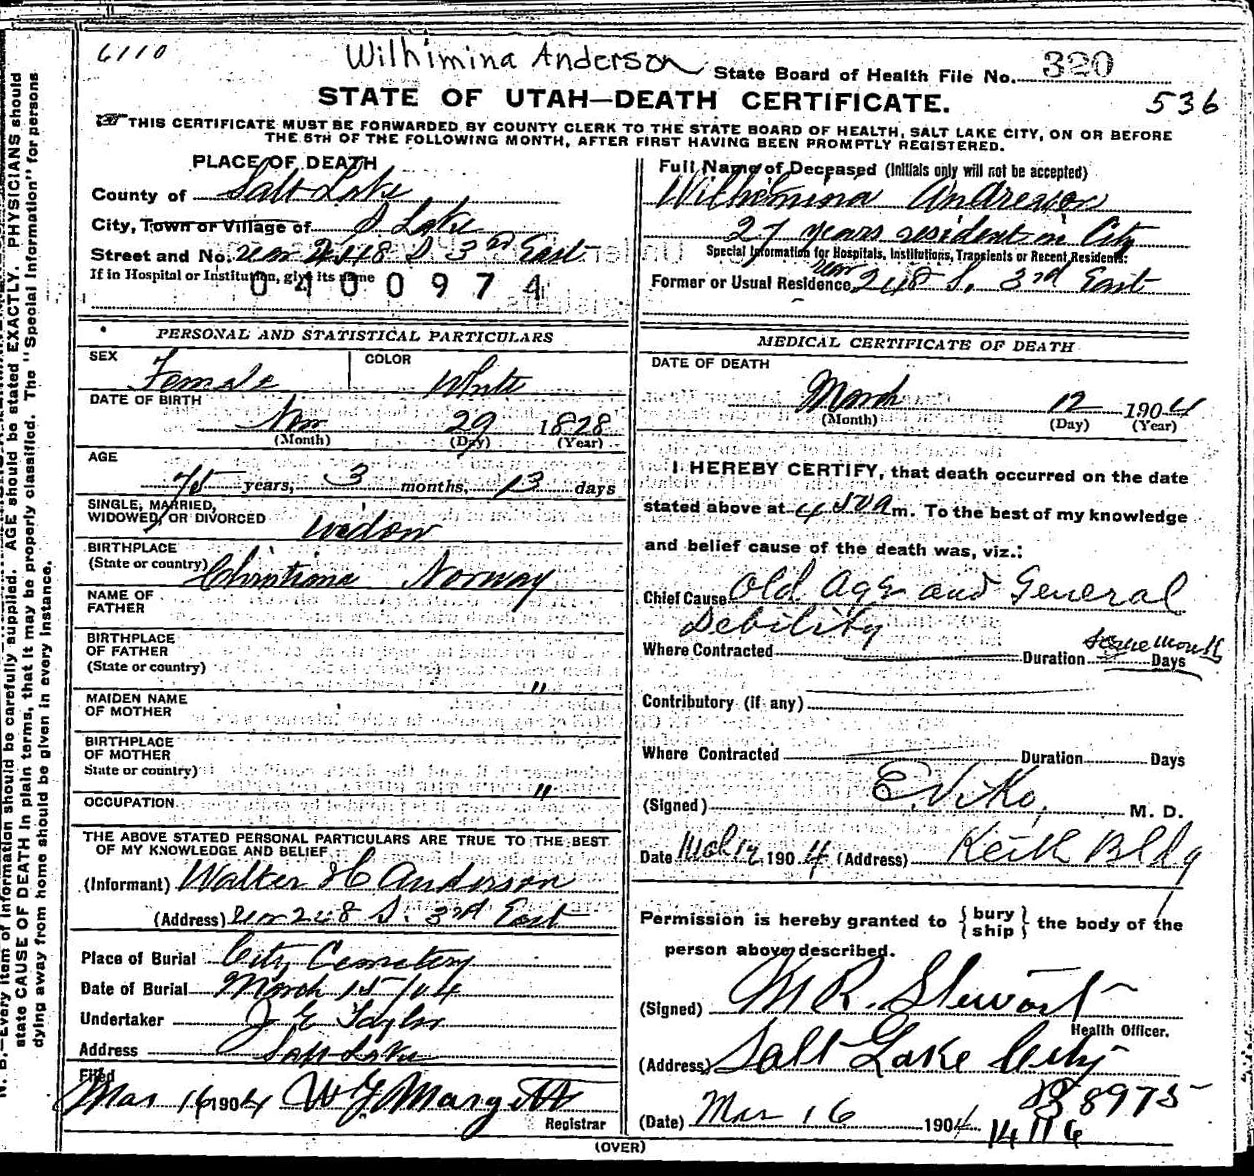 6110
Wilhimina Anderson
State Board of Health File No. 320
STATE OF UTAH—DEATH CERTIFICATE.
536
THIS CERTIFICATE MUST BE FORWARDED BY COUNTY CLERK TO THE STATE BOARD OF HEALTH, SALT LAKE CITY, ON OR BEFORE
THE 5TH OF THE FOLLOWING MONTH, AFTER FIRST HAVING BEEN PROMPTLY REGISTERED.
PLACE OF DEATH
County of Salt Lake
City, Town or Village of S Lake
Street and No. rear 248 S 3rd East
If in Hospital or Institution, give its name
0400974
PERSONAL AND STATISTICAL PARTICULARS
SEX Female
COLOR White
DATE OF BIRTH
Nov 29 1828
(Month) (Day) (Year)
AGE
75 years, 3 months, 13 days
SINGLE, MARRIED,
WIDOWED, OR DIVORCED widow
BIRTHPLACE
(State or country) Christiana Norway
NAME OF
FATHER
BIRTHPLACE
OF FATHER
(State or country)
"
MAIDEN NAME
OF MOTHER
BIRTHPLACE
OF MOTHER
State or country)
"
OCCUPATION
THE ABOVE STATED PERSONAL PARTICULARS ARE TRUE TO THE BEST
OF MY KNOWLEDGE AND BELIEF
(Informant) Walter H Anderson
(Address) rear 248 S. 3rd East
Place of Burial City Cemetery
Date of Burial March 15/04
Undertaker J E Taylor
Address Salt Lake
Filed
Mar 16 1904 W G Margetts
Registrar
Full Name of Deceased (Initials only will not be accepted)
Wilhelmina Anderson
27 years resident in City
Special Information for Hospitals, Institutions, Transients or Recent Residents:
Former or Usual Residence rear 248 S. 3rd East
MEDICAL CERTIFICATE OF DEATH
DATE OF DEATH
March 12 1904
(Month) (Day) (Year)
I HEREBY CERTIFY, that death occurred on the date
stated above at 4 50 a m. To the best of my knowledge
and belief cause of the death was, viz.:
Chief Cause Old Age and General
Debility
Where Contracted Duration some months Days
Contributory (if any)
Where Contracted Duration Days
(Signed) E. Viko, M. D.
Date Mch 12, 1904 (Address) Keith Bldg
Permission is hereby granted to { bury ship } the body of the
person above described.
(Signed) M R. Stewart
Health Officer.
(Address) Salt Lake City
(Date) Mar 16 1904
B 8975
14 11 6
(OVER)
N. B.—Every item of information should be carefully supplied. AGE should be stated EXACTLY. PHYSICIANS should
state CAUSE OF DEATH in plain terms, that it may be properly classified. The "Special Information" for persons
dying away from home should be given in every instance.